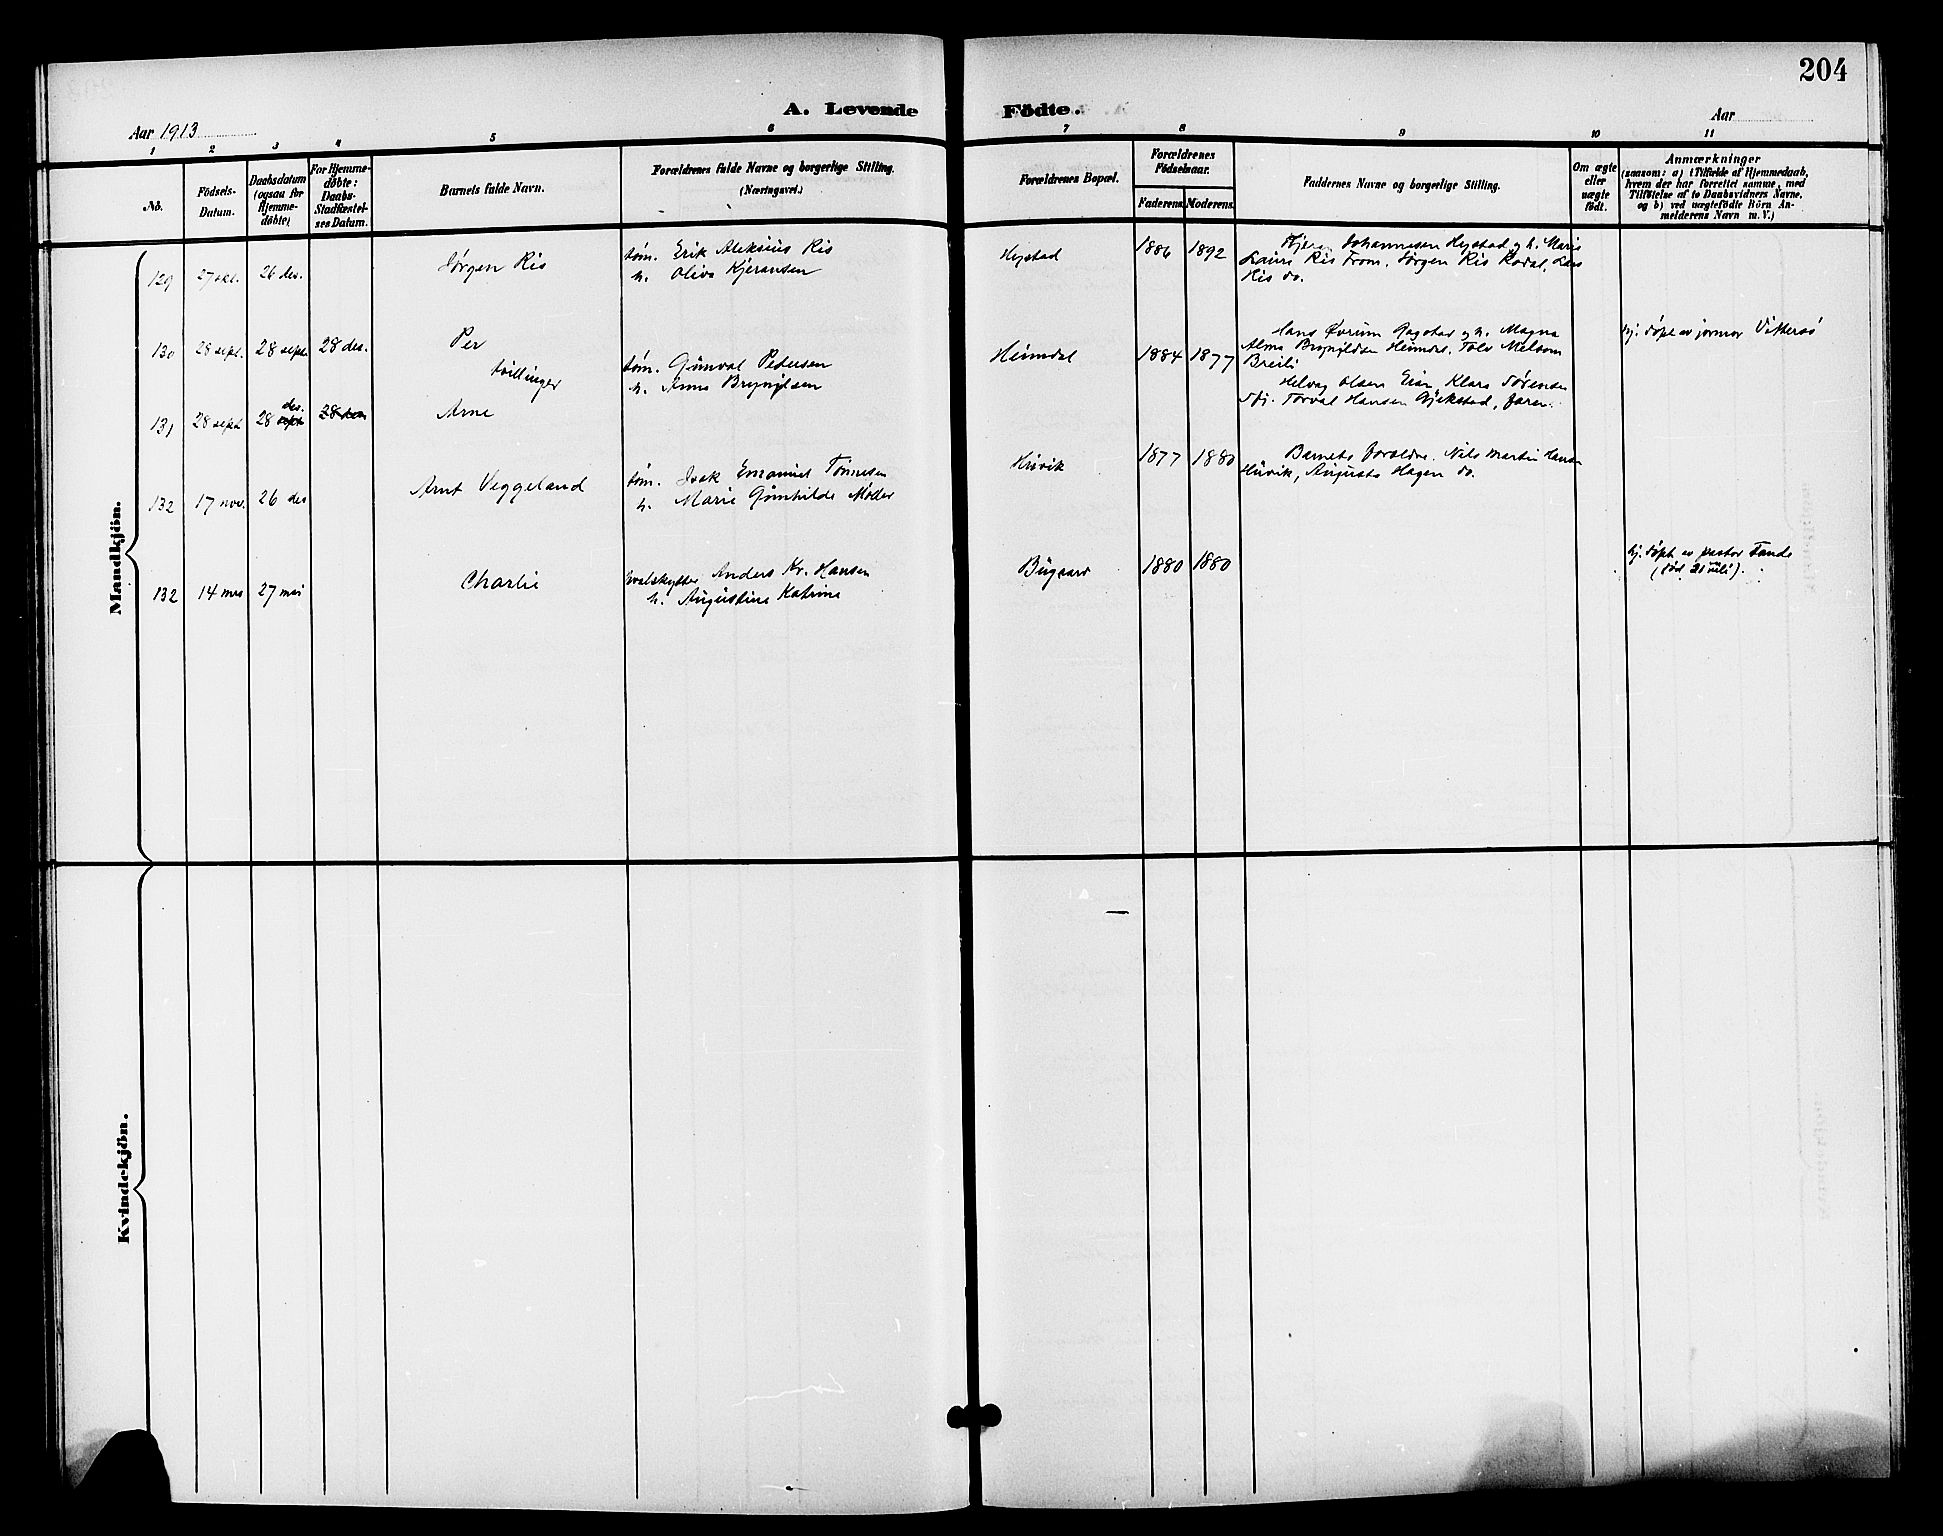 204
A. Levende Födte.
Aar 1913
Aar
1 2 3 4 5 6 7 8 9 10 11
No.
Födsels-
Datum.
Daabsdatum
(ogsaa for
Hjemme-
døbte)
For Hjemme-
døbte:
Daabs-
Stadfæstel-
ses Datum.
Barnets fulde Navn.
Forældrenes fulde Navne og borgerlige Stilling.
(Næringsvei.)
Forældrenes Bopæl.
Forældrenes
Födselsaar.
Faderens. Moderens.
Faddernes Navne og borgerlige Stilling.
Om ægte
eller
uægte
født.
Anmærkninger
(saasom: a) i Tilfælde af Hjemmedaab,
hvem der har forrettet samme, med
Tilføielse af to Daabsvidners Navne,
og b) ved uægtefödte Börn An-
melderens Navn m. V.)
Mandkjön.
129 27 okt. 26 des. Jørgen Ris
tøm. Erik Aleksius Ris
h. Oliva Kjeransen
Hystad 1886 1892
Johannesen Hystad og h. Marie
Laura Ris From. Jørgen Ris Rodal, Lars
Ris do.
130 28 sept. 28 sept. 28 des. Per
tvillinger
tøm. Gunval Pedersen
h. Anna Brynjilsen
Heimdal 1884 1877
Hans Øvrum Gogstad og h. Magna
Alma Brynjildsen Heimdal. Tolv Melsom
Breili
Helvag Olsen Eian, Klara Sørensen
Torval Hansen Gjekstad, faren.
hj. døpt av jormor Vittersø
131 28 sept 28 sept des. 28 des Arne
132 17 nov. 26 des Arnt Veggeland
tøm. Isak Emanuel Tønnesen
h. Marie Gunhilde Møller
Huvik 1877 1880
Barnets foreldre. Nils Martin Hansen
Huvik, Augusta Hagen do.
132 14 mai 27 mai Charlie
hvalskytter Anders Kr. Hansen
h. Augustine Katrine
Bugaard 1880 1880
hj. døpt av pastor Tande
Kvindekjön.